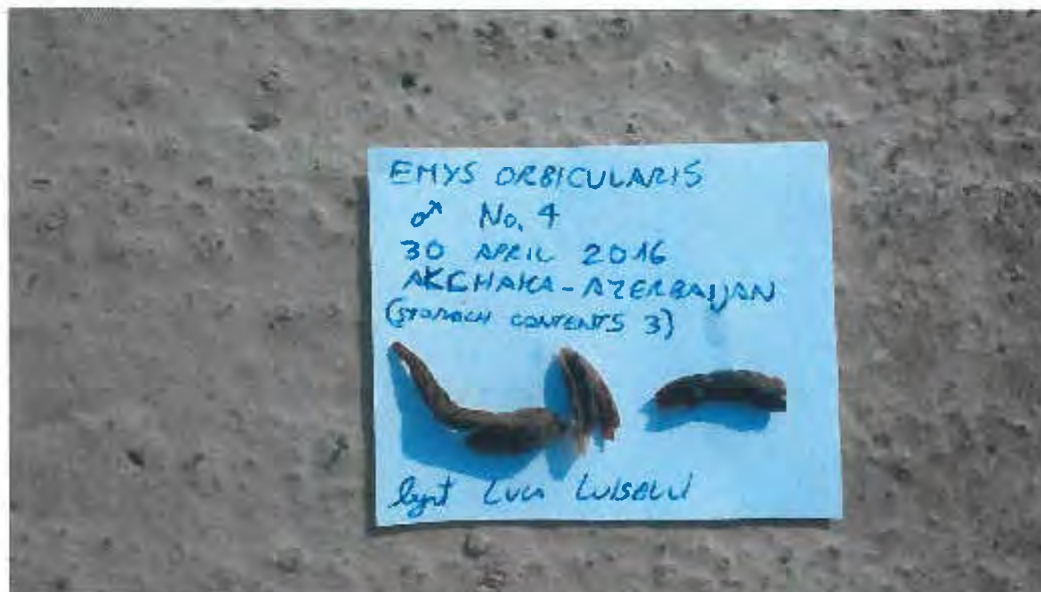 EMYS ORBICULARIS
♂ No. 4
30 APRIL 2016
AKCHAKA - AZERBAIJAN
(STOMACH CONTENTS 3)
legit LUCA LUISELLI